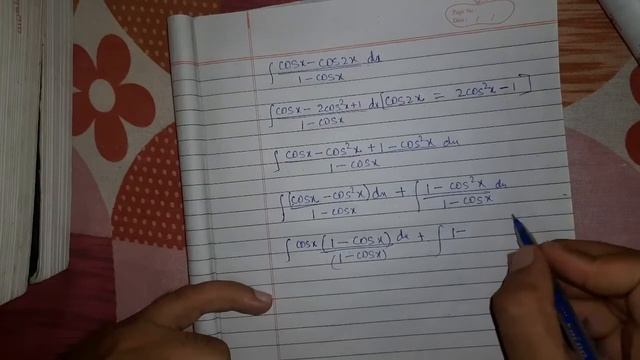 Page No.
Date: / /
∫ (cosx - cos2x)/(1 - cosx) dx
∫ (cosx - 2cos²x + 1)/(1 - cosx) dx [cos2x = 2cos²x - 1]
∫ (cosx - cos²x + 1 - cos²x)/(1 - cosx) dx
∫ (cosx - cos²x)/(1 - cosx) dx + ∫ (1 - cos²x)/(1 - cosx) dx
∫ cosx (1 - cosx)/(1 - cosx) dx + ∫ 1 -